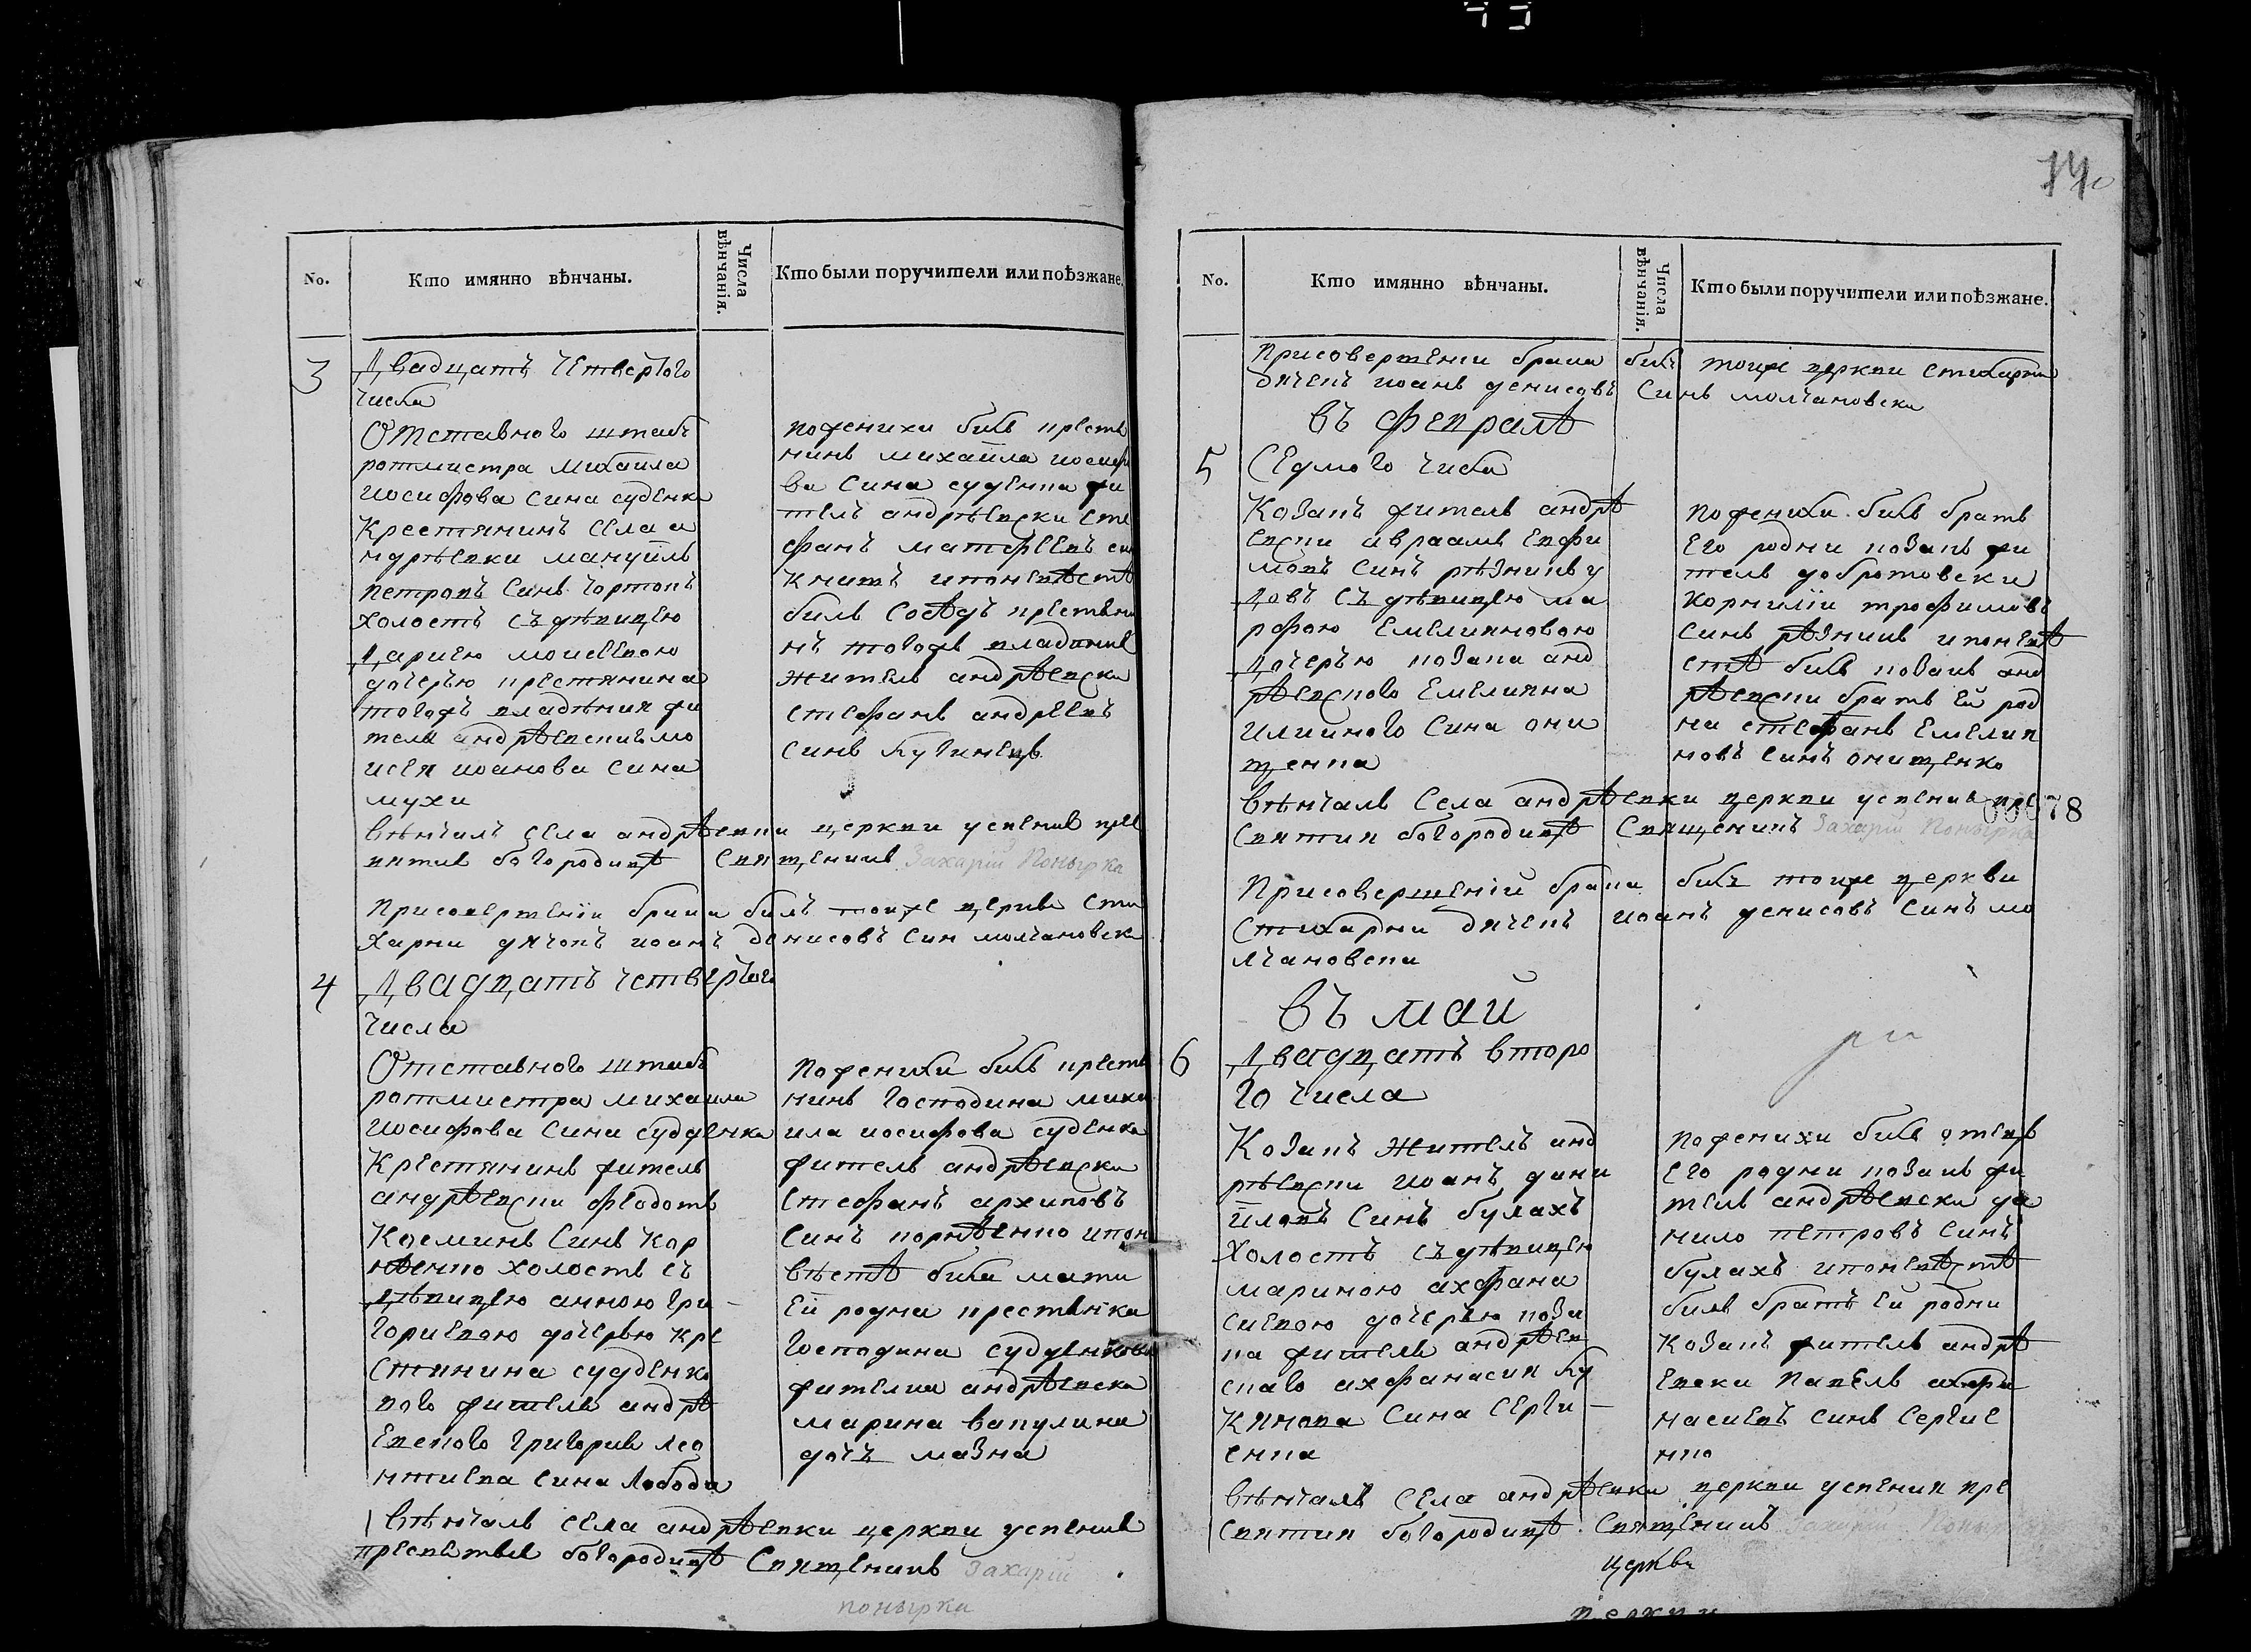 74
No.
Кто имянно вѣнчаны.
Числа вѣнчанія.
Кто были поручители или поѣзжане.
3
Двадцать четвертого
числа
Отставного штабъ
ротмистра михаила
иосифова сина судѣнка
Крестянинъ села а
ндрѣевки мануилъ
петровъ Синъ чортокъ
холостъ съ дѣвицею
Дариею моисеевою
дочерью крестянина
тогожъ владѣния жи
теля андрѣевского мо
исея иоанова сина
мухи
пожениху билъ крестя
нинъ михаила иосифо
ва сина судѣнка жи
тель андрѣевски сте
фанъ матфеевъ син
книтъ ипоневѣстѣ
билъ сосѣдъ крестяни
нъ тогожъ владѣния
житель андрѣевски
стефанъ андреевъ
синъ кучинецъ
вѣнчалъ села андрѣевки церкви успения пре
святия богородицѣ Священикъ Захарій Понырка
Присовершении брака билъ тоиже церкви сти
харни дячокъ иоанъ денисовъ син молчановски
4
Двадцать четвертого
числа
Отставного штабъ
ротмистра михаила
иосифова сина судденка
Крестянинъ житель
андрѣевски феодотъ
Косминъ Синъ Кор
нѣенко холостъ съ
дѣвицею анною гри
гориевою дочерью кре
стянина судденко
вого жителя андрѣ
евского григория лео
нтиева сина Лободи
пожениху билъ крестя
нинъ господина миха
ила иосифова судденка
житель андрѣевски
стефанъ архиповъ
синъ корнѣенко ипоне
вѣстѣ била мати
еи родна крестянка
господина судденкова
жителка андрѣевска
марина вакулина
дочъ мазна
вѣнчалъ села андрѣевки церкви успения
пресвятыя богородицѣ Священикъ Захарій
понырка
No.
Кто имянно вѣнчаны.
Числа вѣнчанія.
Кто были поручители или поѣзжане.
Присовершении брака билъ тоиже церкви стихарни
дячекъ иоанъ денисовъ Синъ молчановски
въ февралѣ
5
Седмого числа
Козакъ житель андрѣ
евски авраамъ евфи
мовъ синъ рѣзникъ у
довъ съ дѣвицею ма
рфою Емелияновою
дочерью козака анд
рѣевского Емелияна
илииного Сина они
щенка
пожениху билъ братъ
его родни козакъ жи
тель добротовски
корнилии трофимовъ
синъ рѣзникъ ипоневѣ
стѣ билъ козакъ анд
рѣевски братъ Еи род
ни стефанъ Емелия
новъ синъ онищенко
вѣнчалъ Села андрѣевки церкви успения пре
Святия богородицѣ Священикъ Захарій Понырка
00078
Присовершении брака билъ тоиже церкви
Стихарни дячекъ иоанъ денисовъ Синъ мо
лчановски
въ маи
6
Двадцать второ
го числа
Козакъ житель анд
рѣевски иоанъ дани
иловъ Синъ булахъ
холостъ съ дѣвицею
мариною ахфана
сиевою дочерью коза
ка жителя андрѣев
скаго ахфанасия лу
кянова Сина Серги
енка
пожениху билъ отецъ
его родни козакъ жи
тель андрѣевски да
нило петровъ Синъ
булахъ ипоневѣстѣ
билъ братъ Еи родни
козакъ житель андрѣ
евски павелъ ахфа
насиевъ синъ Сергие
нко
вѣнчалъ Села андрѣевки церкви успения пре
Святия богородицѣ Священикъ Захарій Понырка
церкви